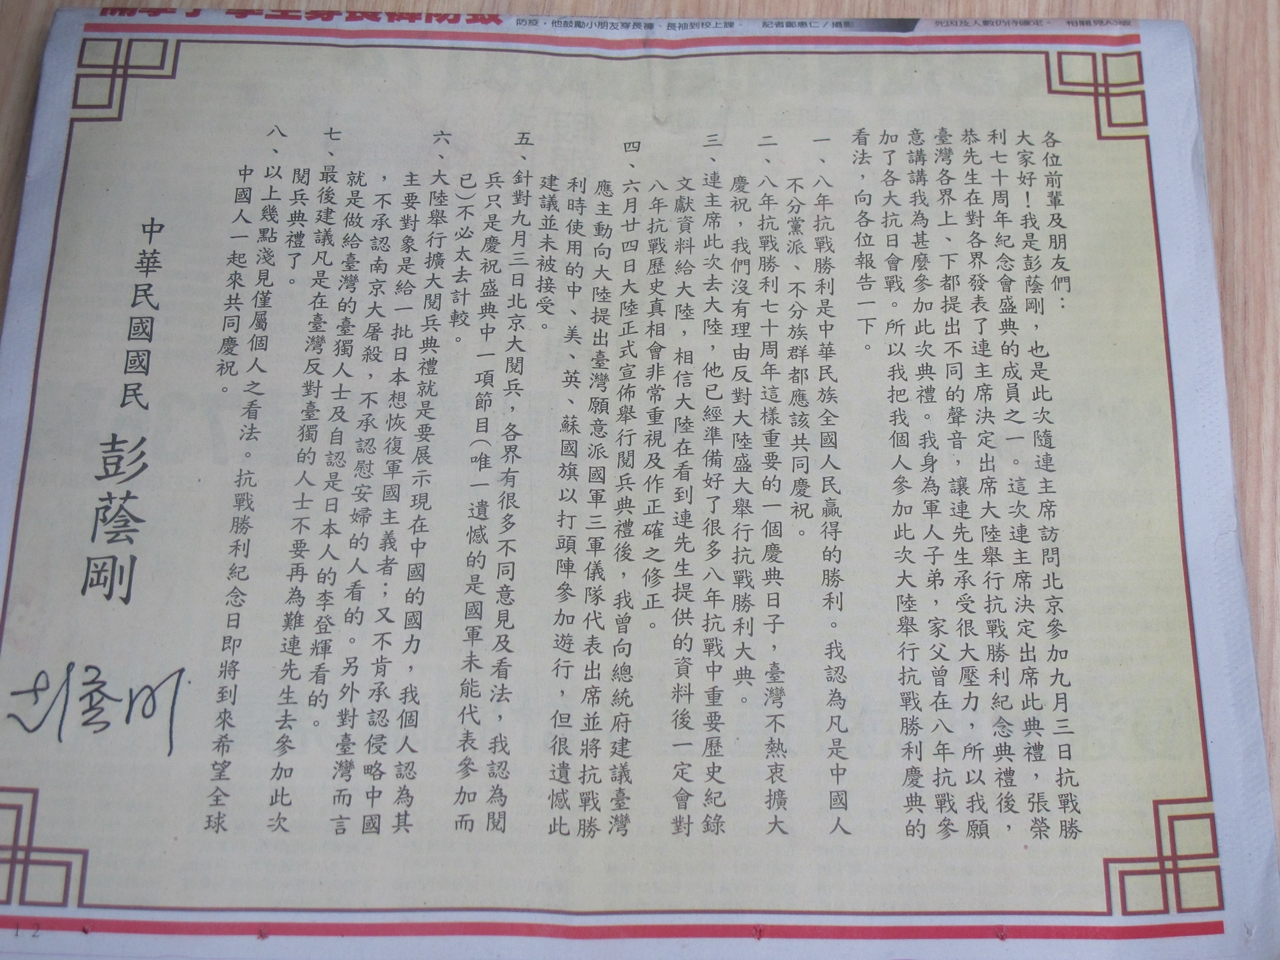 防疫，他鼓勵小朋友穿長褲、長袖到校上課。
記者鄭惠仁／攝影
各位前輩及朋友們：
大家好！我是彭蔭剛，也是此次隨連主席訪問北京參加九月三日抗戰勝
利七十周年紀念會盛典的成員之一。這次連主席決定出席此典禮，張榮
恭先生在對各界發表了連主席決定出席大陸舉行抗戰勝利紀念典禮後，
臺灣各界上、下都提出不同的聲音，讓連先生承受很大壓力，所以我願
意講講我為甚麼參加此次典禮。我身為軍人子弟，家父曾在八年抗戰參
加了各大抗日會戰。所以我把我個人參加此次大陸舉行抗戰勝利慶典的
看法，向各位報告一下。
一、八年抗戰勝利是中華民族全國人民贏得的勝利。我認為凡是中國人
不分黨派、不分族群都應該共同慶祝。
二、八年抗戰勝利七十周年這樣重要的一個慶典日子，臺灣不熱衷擴大
慶祝，我們沒有理由反對大陸盛大舉行抗戰勝利大典。
三、連主席此次去大陸，他已經準備好了很多八年抗戰中重要歷史紀錄
文獻資料給大陸，相信大陸在看到連先生提供的資料後一定會對
八年抗戰歷史真相會非常重視及作正確之修正。
四、六月廿四日大陸正式宣佈舉行閱兵典禮後，我曾向總統府建議臺灣
應主動向大陸提出臺灣願意派國軍三軍儀隊代表出席並將抗戰勝
利時使用的中、美、英、蘇國旗以打頭陣參加遊行，但很遺憾此
建議並未被接受。
五、針對九月三日北京大閱兵，各界有很多不同意見及看法，我認為閱
兵只是慶祝盛典中一項節目（唯一遺憾的是國軍未能代表參加而
已）不必太去計較。
六、大陸舉行擴大閱兵典禮就是要展示現在中國的國力，我個人認為其
主要對象是給一批日本想恢復軍國主義者；又不肯承認侵略中國
，不承認南京大屠殺，不承認慰安婦的人看的。另外對臺灣而言
就是做給臺灣的臺獨人士及自認是日本人的李登輝看的。
七、最後建議凡是在臺灣反對臺獨的人士不要再為難連先生去參加此次
閱兵典禮了。
八、以上幾點淺見僅屬個人之看法。抗戰勝利紀念日即將到來希望全球
中國人一起來共同慶祝。
中華民國國民 彭蔭剛
彭蔭剛
12